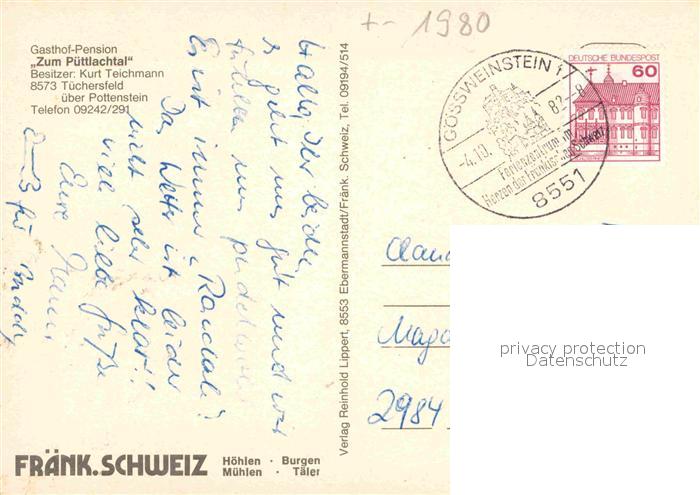 +- 1980
Gasthof-Pension
„Zum Püttlachtal"
Besitzer: Kurt Teichmann
8573 Tüchersfeld
über Pottenstein
Telefon 09242/291
Hallo, Ihr beiden,
es geht uns gut und wir
fühlen uns pudelwohl
Es ist immer "Randale"!
Das Wetter ist leider
nicht sehr klar!!
viel liebe Grüße
Eure
für
FRÄNK.SCHWEIZ
Höhlen · Burgen
Mühlen · Täler
Verlag Reinhold Lippert, 8553 Ebermannstadt/Fränk. Schweiz, Tel. 09194/514
GÖSSWEINSTEIN 1
-4.10. 82-8
Ferienzentrum im
Herzen der Fränkischen Schweiz
8551
DEUTSCHE BUNDESPOST
60
2984
privacy protection
Datenschutz